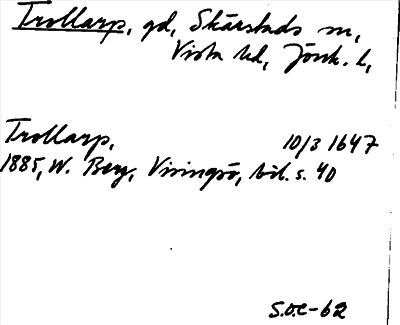 Trollarp, gd, Skärstads sn,
Vista hd, Jönk. l,
Trollarp, 10/3 1647
1885, W. Berg, Visingsö, bil. s. 40
S.O.E-62